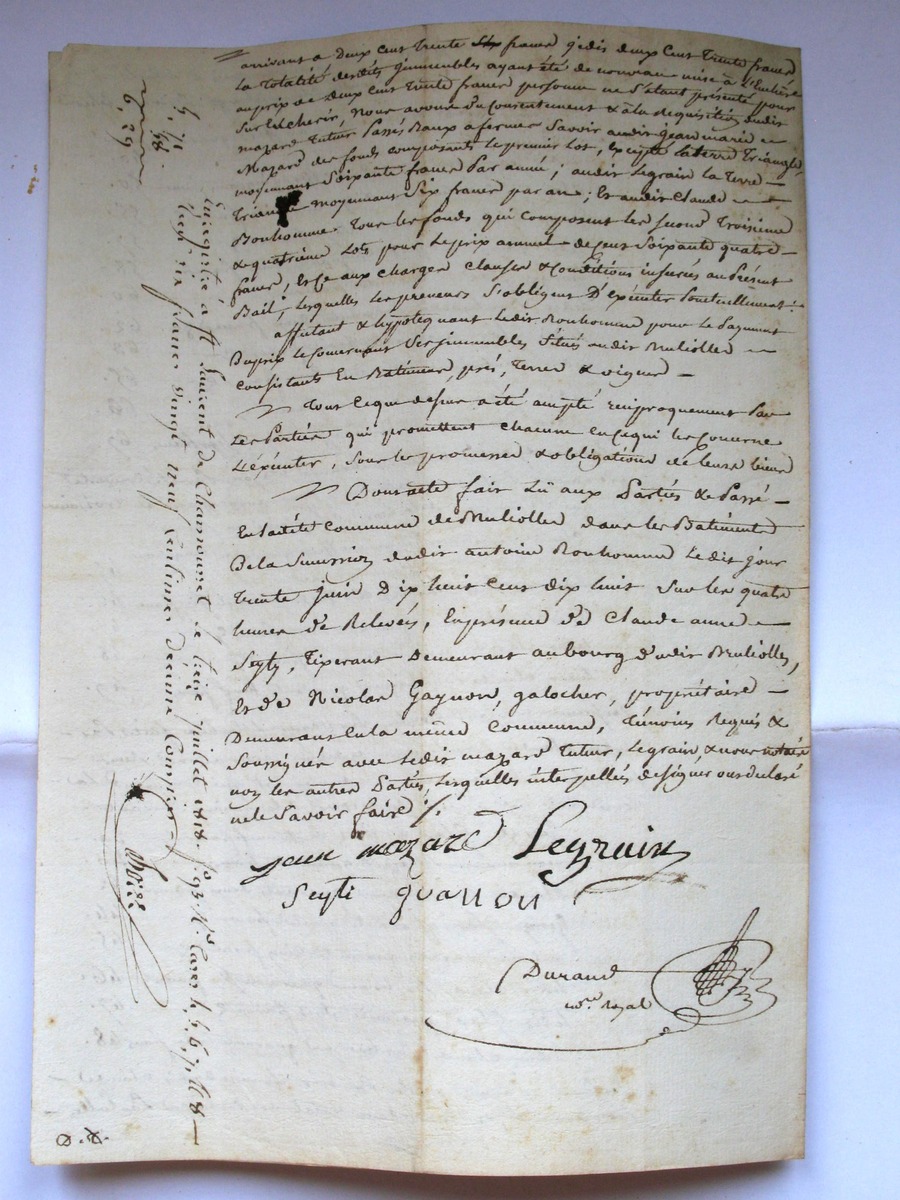 arrivant a Deux Cent Trente Six francs je dis deux Cent Trente francs
La Totalité desdits Immeubles ayant été de nouveau mise à L'Enchère
au prix de Deux Cent Trente francs personne ne s'étant présenté pour
Surencherir, Nous avons du Consentement & à la Requisition dudit
mazard Tutur Passés Baux a ferme Savoir audit Jean marie
Mazard des fonds composants Le premier Lot, Excepté La terre Triangle,
moyennant Soixante francs Par année ; audit Legrain la Terre
Triangle moyennant Six francs par an ; Et audit Claude
Bonhomme Tous les fonds qui composent les second Troisième
& quatrième Lots pour Le prix annuel de Cent Soixante quatre
francs, Et ce aux charges clauses & Conditions inserées au Présent
Bail ; Lesquelles les preneurs S'obligent D'exécuter Ponctuellement.
affectant & hypotéquant Ledit Bonhomme pour le Payement
Du prix le Concernant Ses immeubles Situés audit Bruliolles
Consistants En Batiments, prés, Terres & vignes
Tout Ce que dessus a été accepté réciproquement Par
Les Parties qui promettent chacune en Ce qui les Concerne
L'exécuter, sous les promesses & obligations de leurs biens
Dont acte fait Lû aux Parties & Passé
En Ladite Commune de Bruliolles dans les Batiments
De la Succession dudit antoine Bonhomme Ledit jour
Trente Juin Dix huit Cent dix huit Sur les quatre
heures de Relevée, En présence de Claude anne
Seyty, Tixerant Demeurant au bourg dudit Bruliolles,
Et de Nicolas Gaynon, galocher, propriétaire
Demeurant En la même Commune, Témoins Requis &
Soussignés avec Ledit mazard Tutur, Legrain & nous notaire
non les autres Parties, Lesquelles interpellées de signer ont déclaré
ne le Savoir faire ./.
jean mazard Legrain
Seyti
Durand
not.re royal
Enregistré à St Laurent de Chamousset le treize juillet 1818. fo 93 Ro Cases 4, 5, 6, 7, et 8
Reçu six francs vingt neuf centimes décime Compris